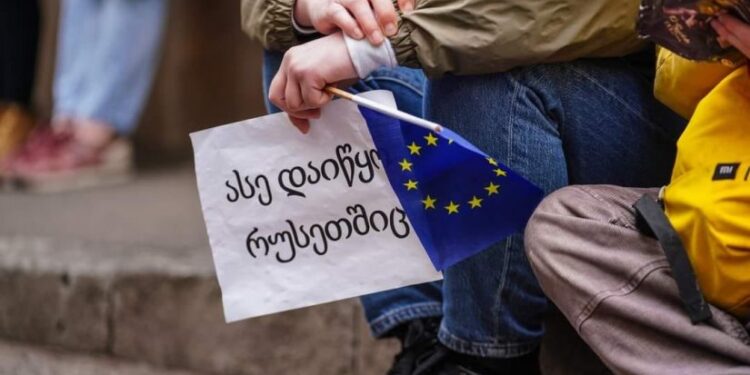 ასე დაიწყო
რუსეთშიც
mi